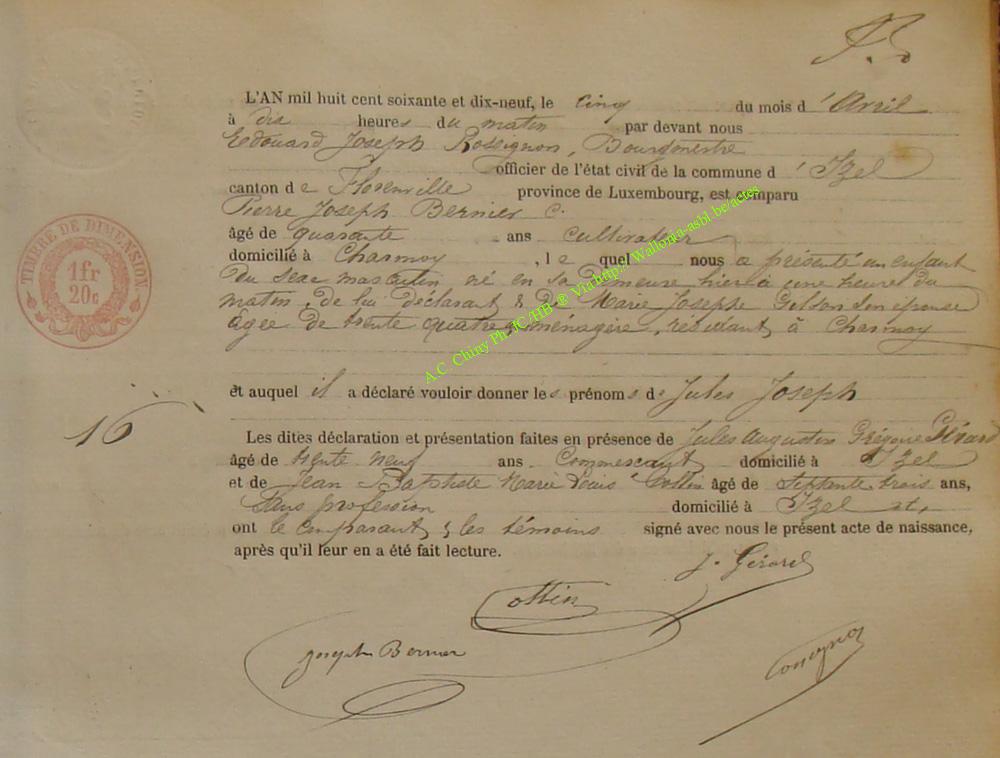 L'AN mil huit cent soixante et dix-neuf, le cinq du mois d'Avril
à dix heures du matin par devant nous
Edouard Joseph Rossignon, Bourgmestre
officier de l'état civil de la commune d'Izel
canton de Florenville province de Luxembourg, est comparu
Pierre Joseph Bernier C.
âgé de quarante ans cultivateur
domicilié à Chasmoy, lequel nous a présenté un enfant
du sexe masculin né en sa demeure hier à une heure du
matin, de lui déclarant & de Marie Joseph Gilson son épouse
âgée de trente quatre ménagère, résidant à Chasmoy
TIMBRE DE DIMENSION.
1fr
20c
et auquel il a déclaré vouloir donner les prénoms de Jules Joseph
16
Les dites déclaration et présentation faites en présence de Jules Augustin Grégoire Gérard
âgé de trente neuf ans Commerçant domicilié à Izel
et de Jean Baptiste Marie Louis Ottin âgé de septante trois ans,
sans profession domicilié à Izel et,
ont le comparant & les témoins signé avec nous le présent acte de naissance,
après qu'il leur en a été fait lecture.
J. Gérard
Ottin
Joseph Bernier
Rossignon
A.C Chiny Ph JC/HB ® Via http://Wallonia-asbl.be/actes